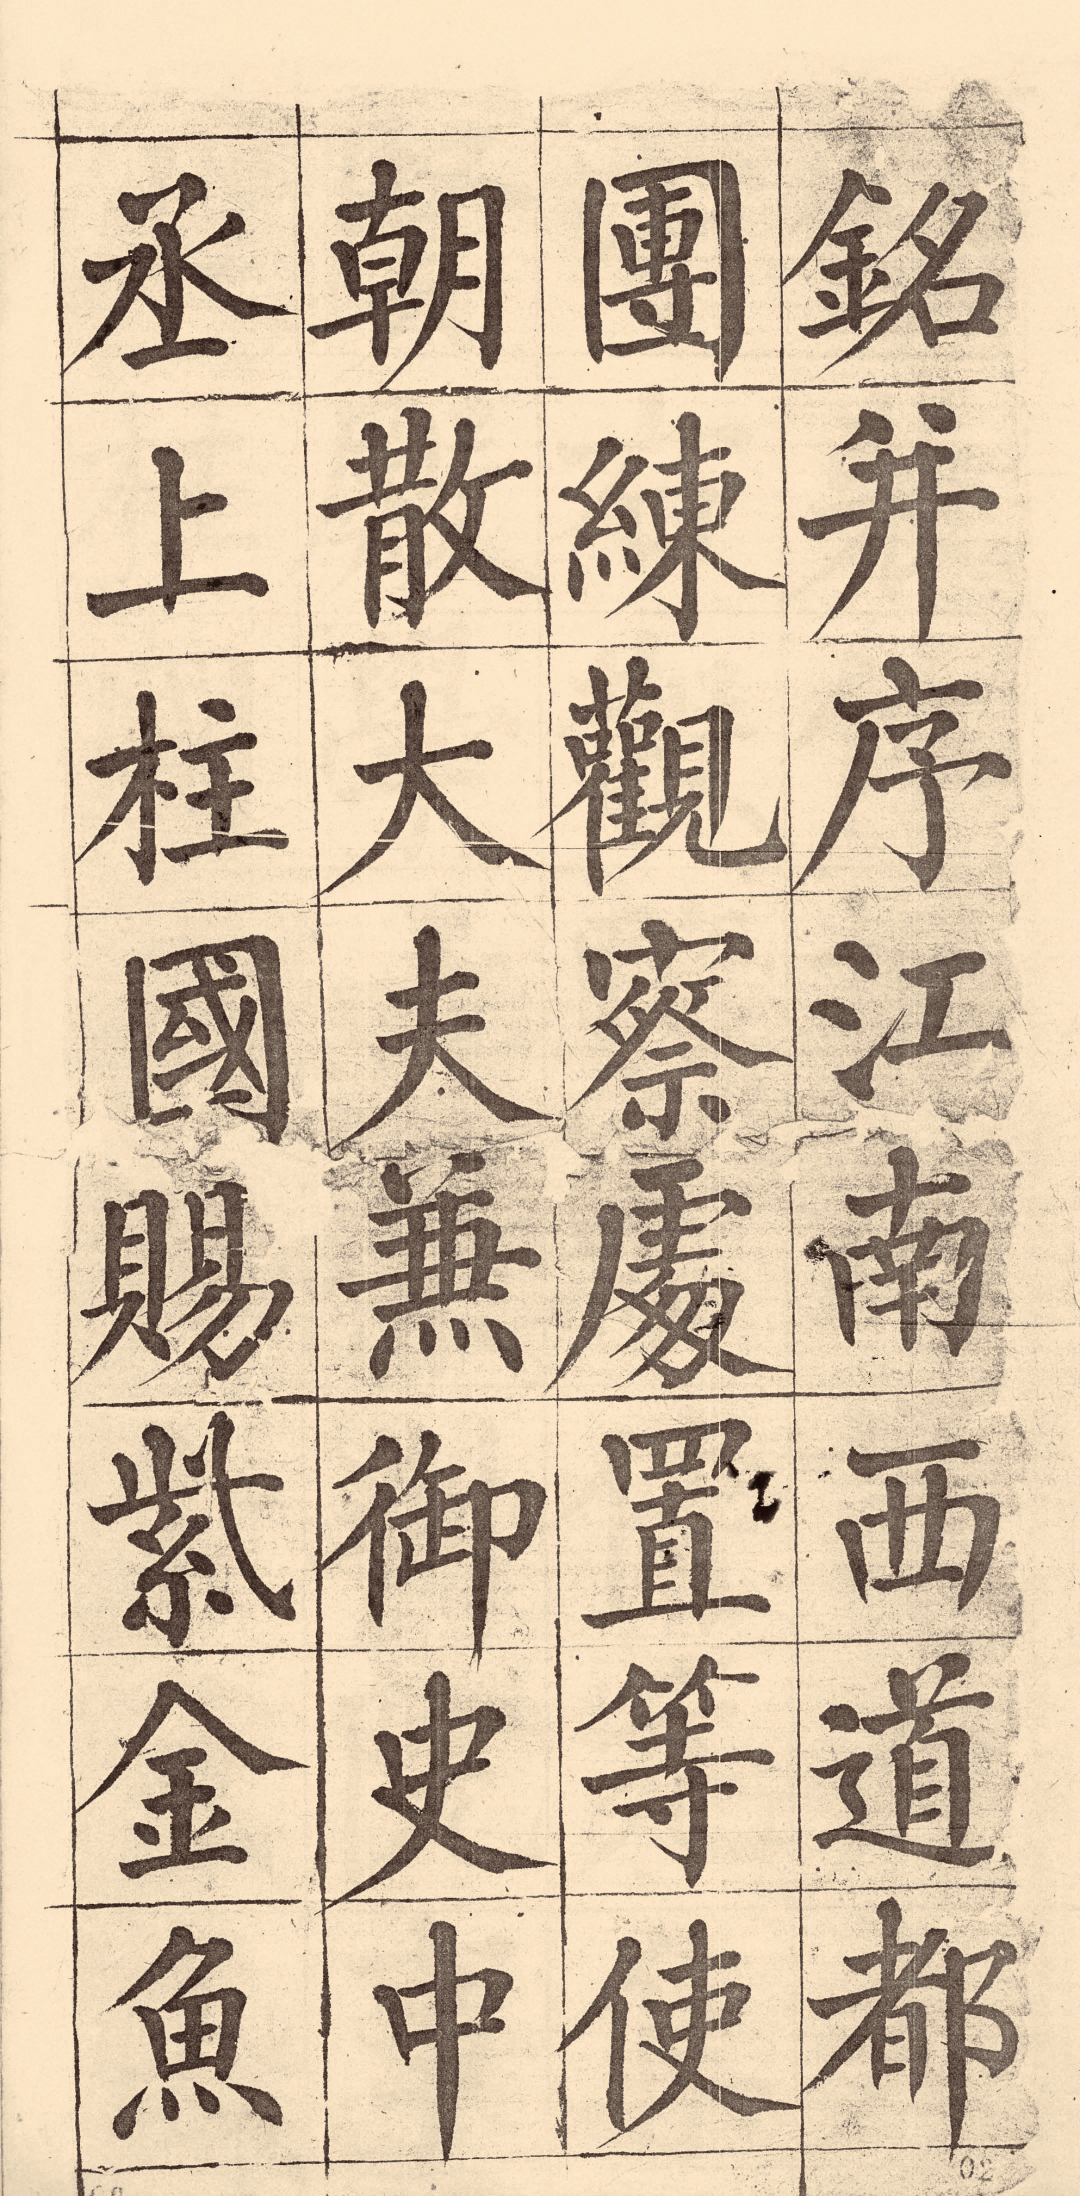 銘并序江南西道都
團練觀察處置等使
朝散大夫兼御史中
丞上柱國賜紫金魚
02